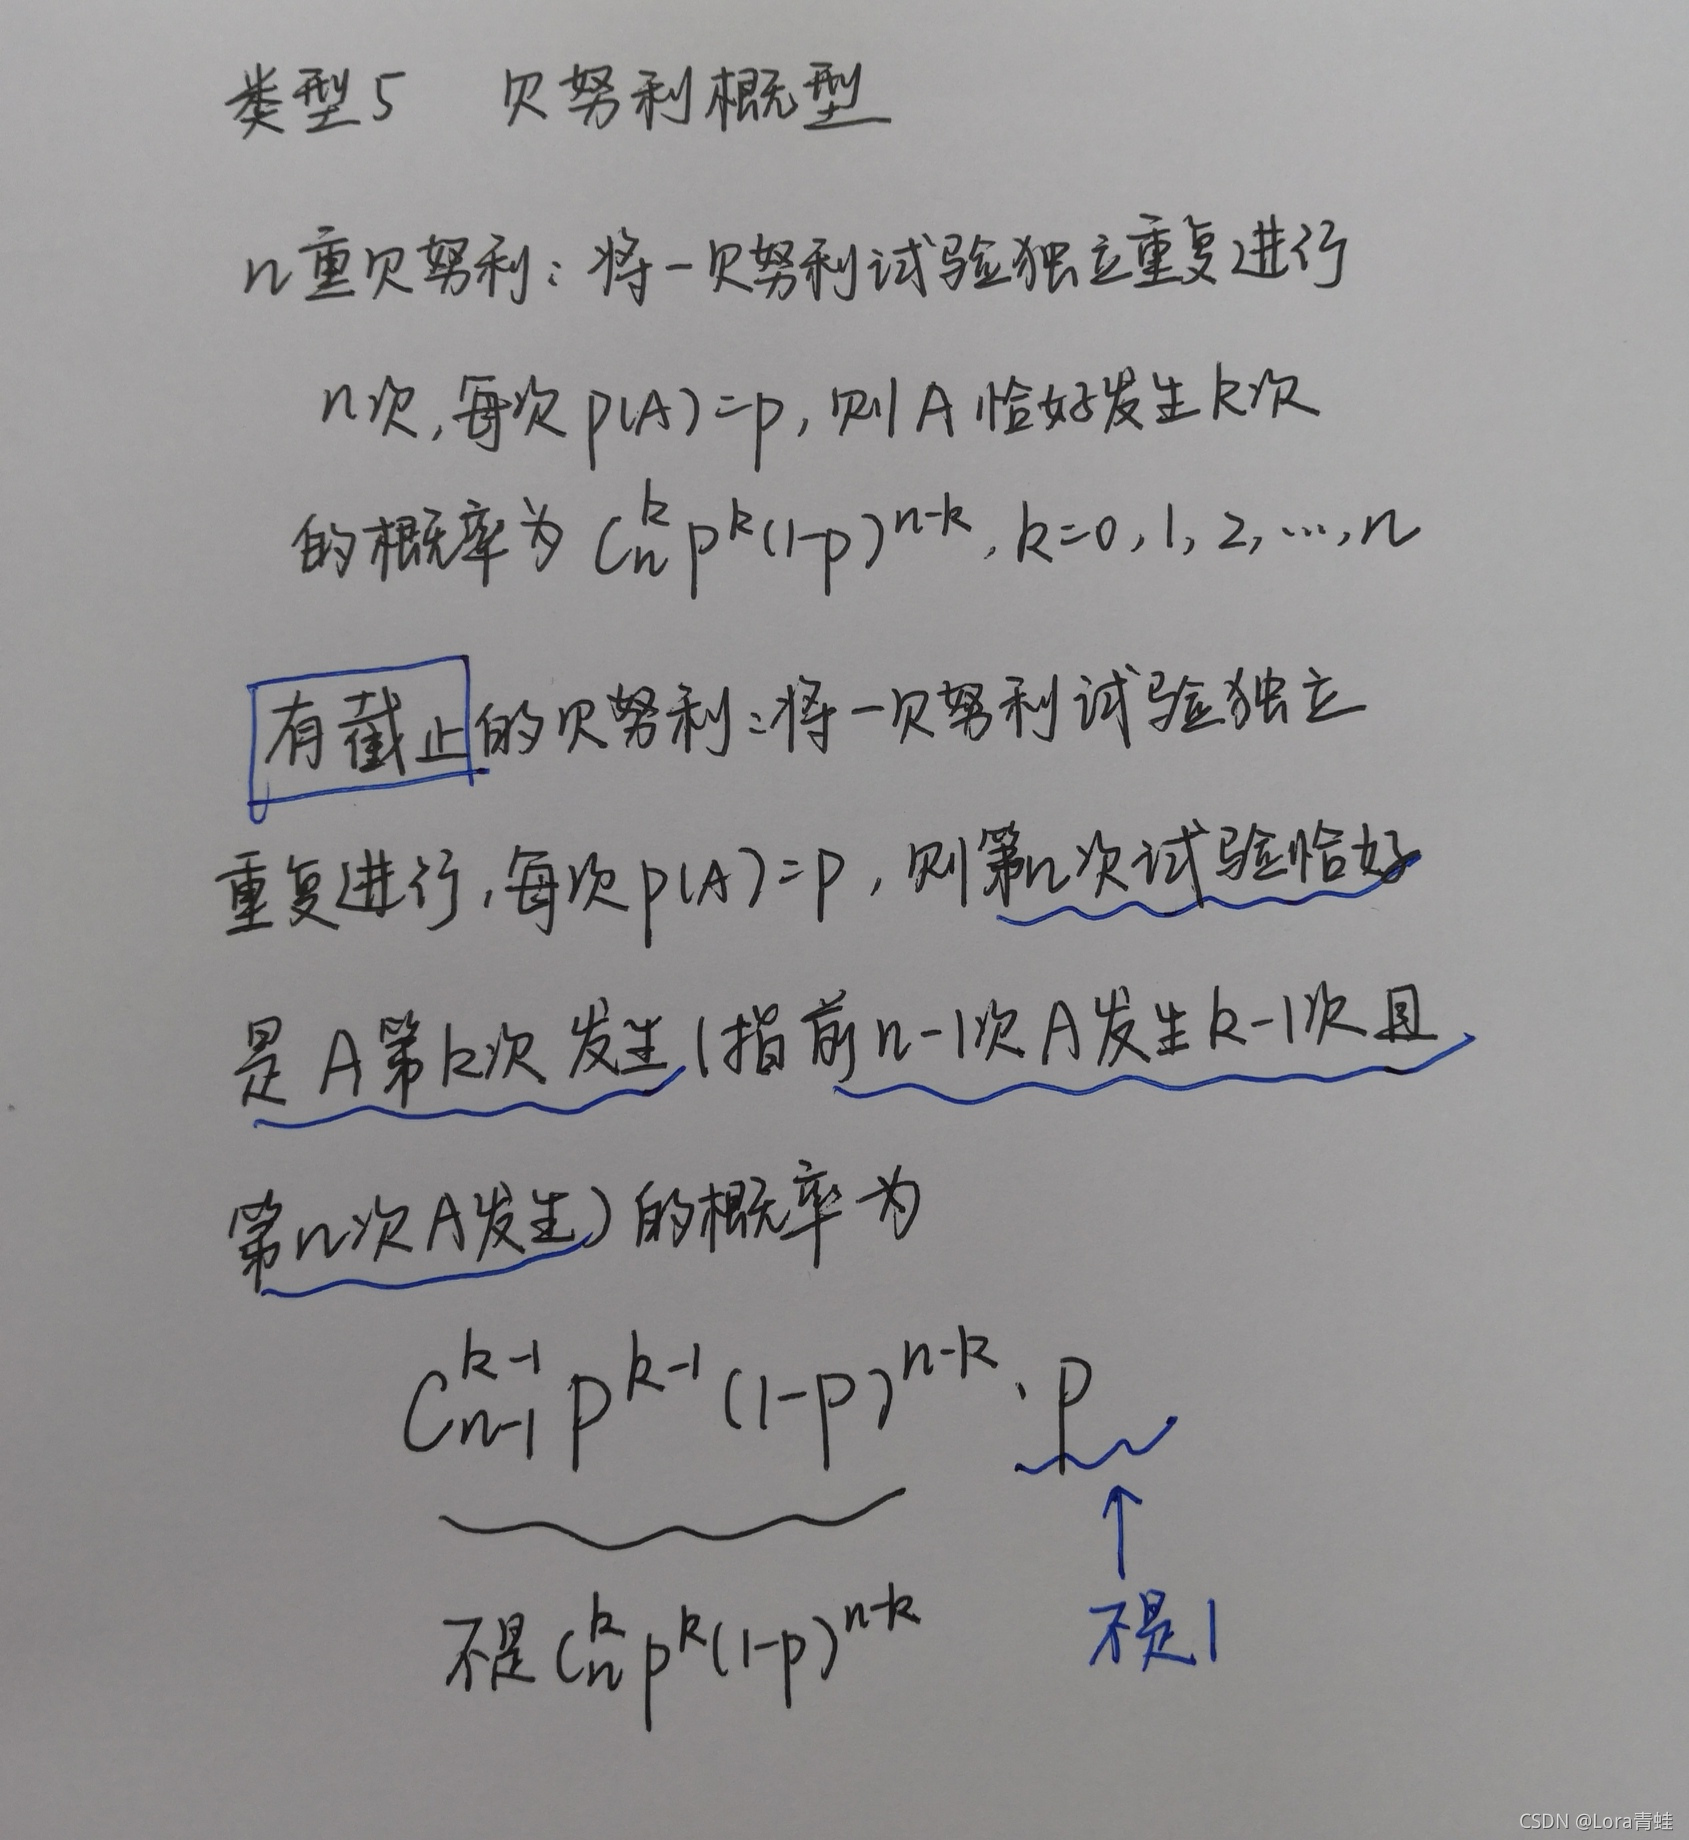 类型5 贝努利概型
n重贝努利：将一贝努利试验独立重复进行
n次，每次p(A)=p，则A恰好发生k次
的概率为 C_n^k p^k (1-p)^{n-k}，k=0,1,2,…,n
有截止的贝努利：将一贝努利试验独立
重复进行，每次p(A)=p，则第n次试验恰好
是A第k次发生（指前n-1次A发生k-1次且
第n次A发生）的概率为
C_{n-1}^{k-1} p^{k-1} (1-p)^{n-k} · p
不是 C_n^k p^k (1-p)^{n-k}
不是1
CSDN @Lora青蛙